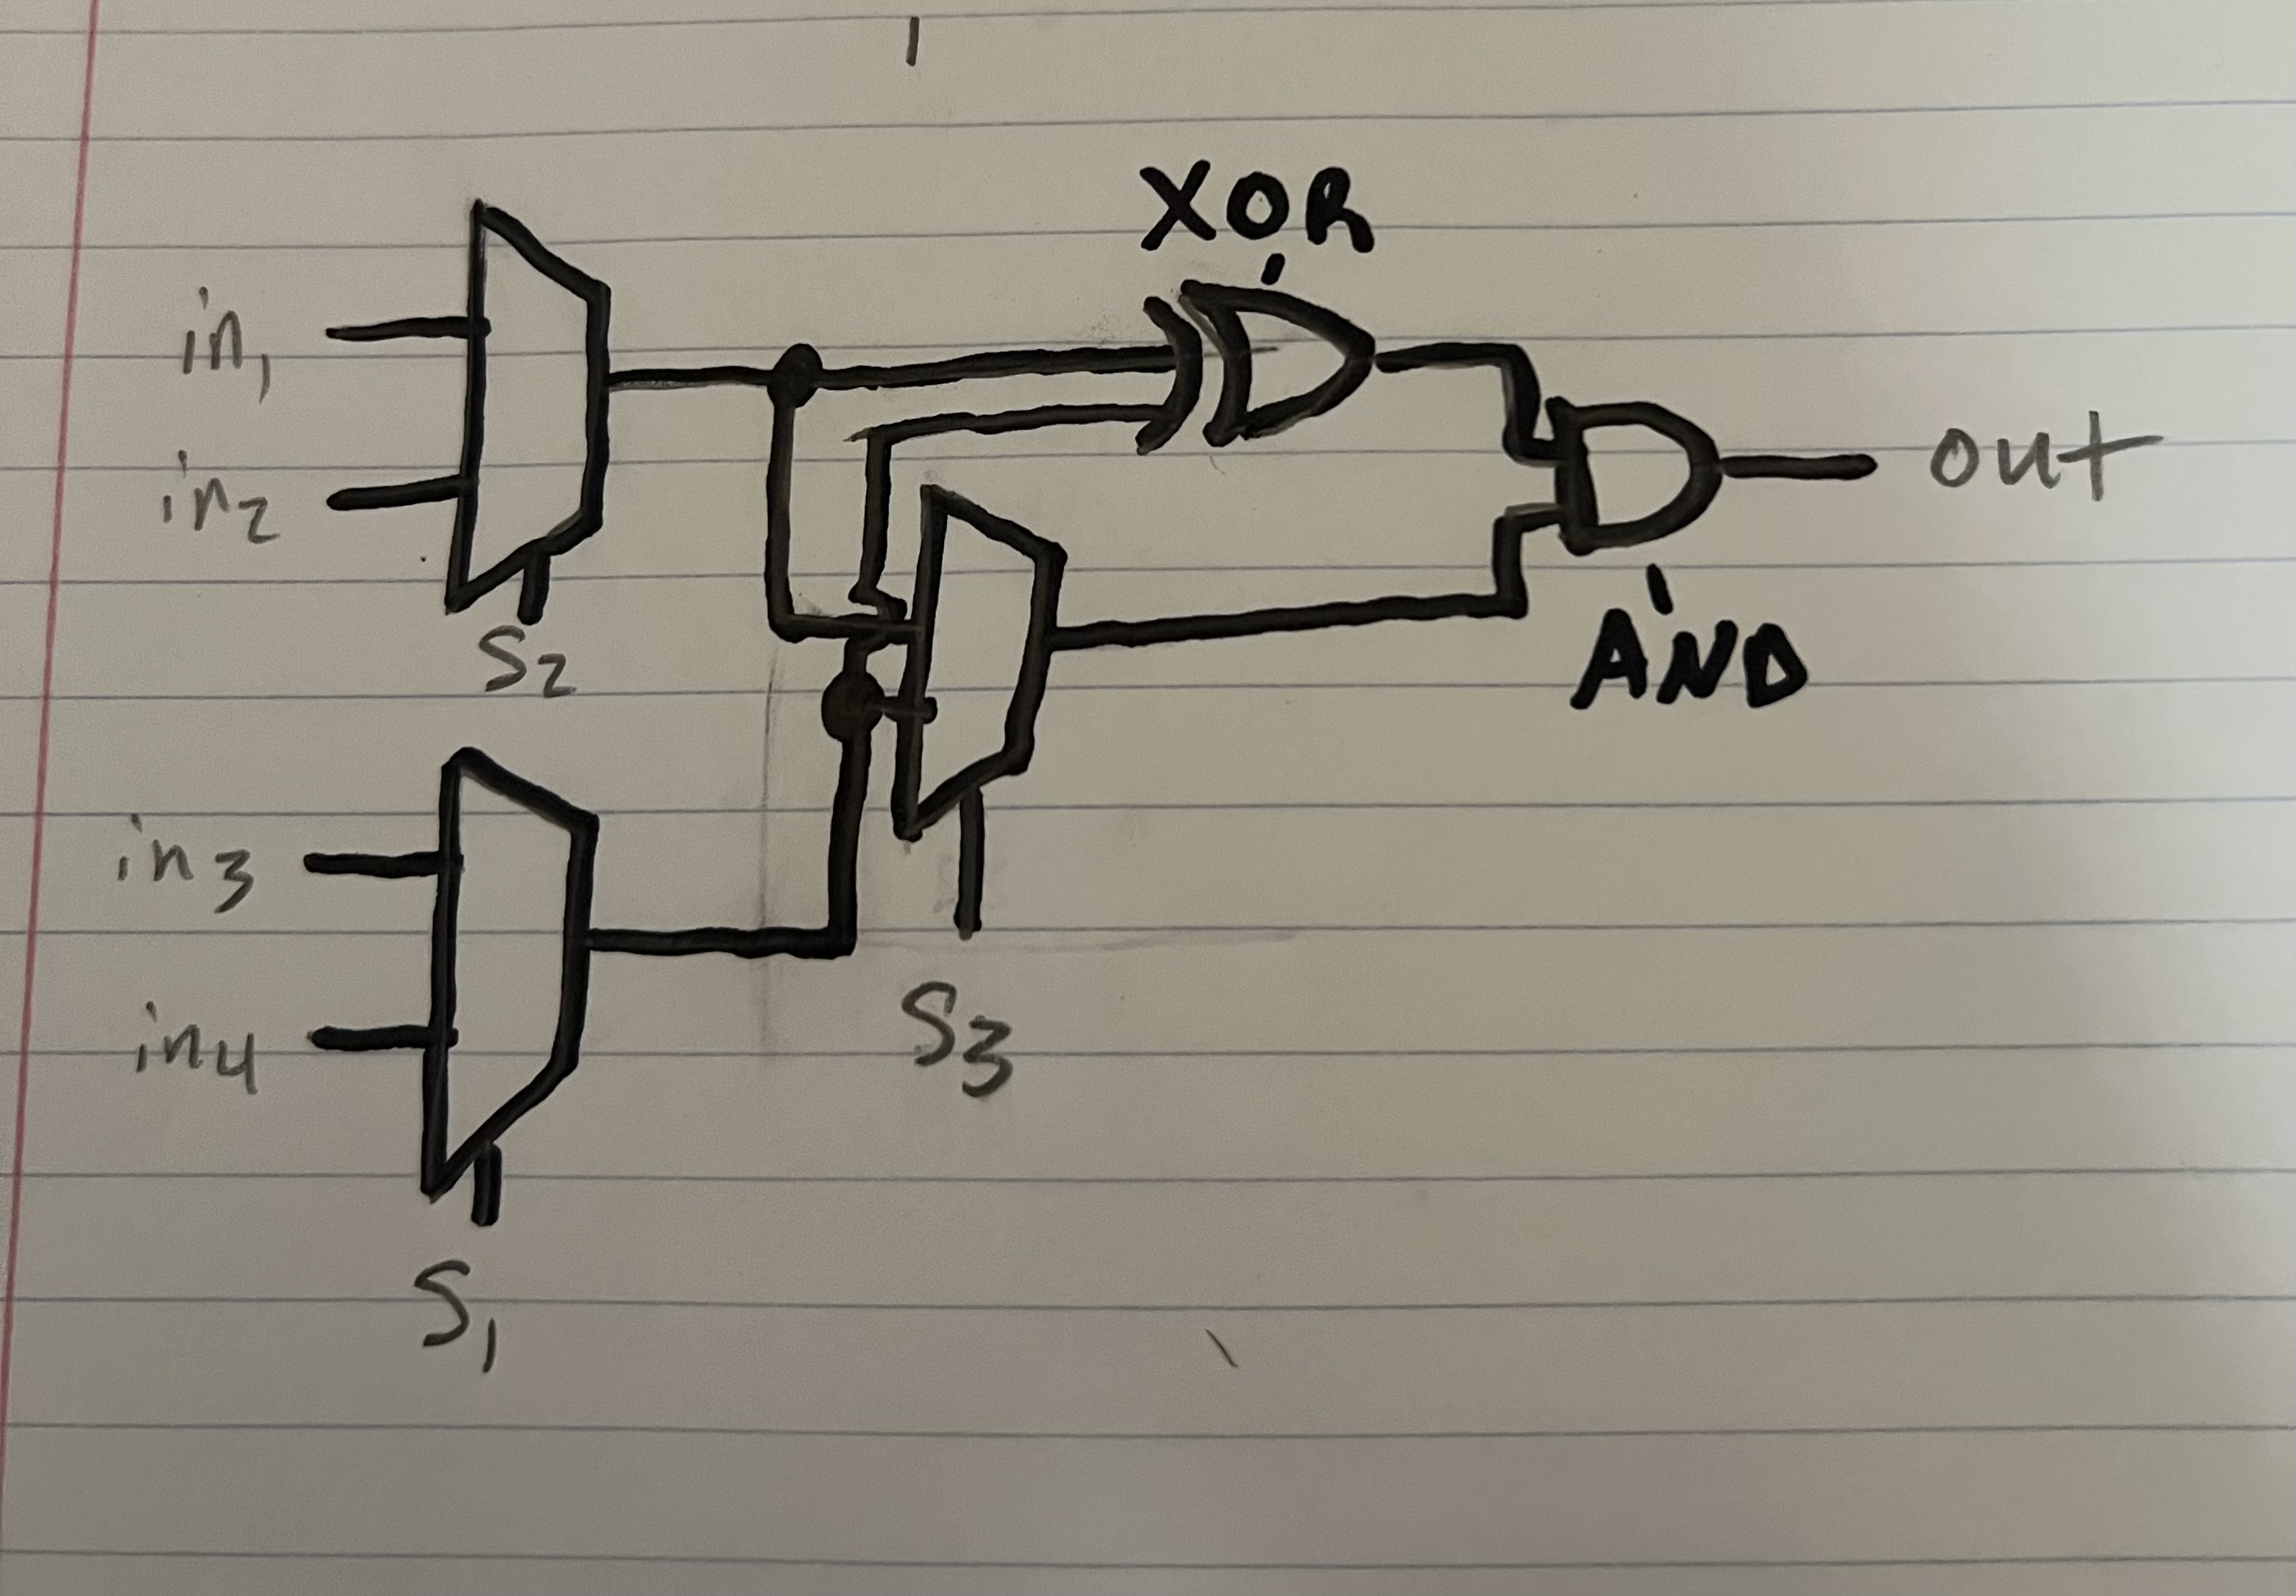 XOR
in₁
in₂
out
S₂
AND
in₃
in₄
S₃
S₁